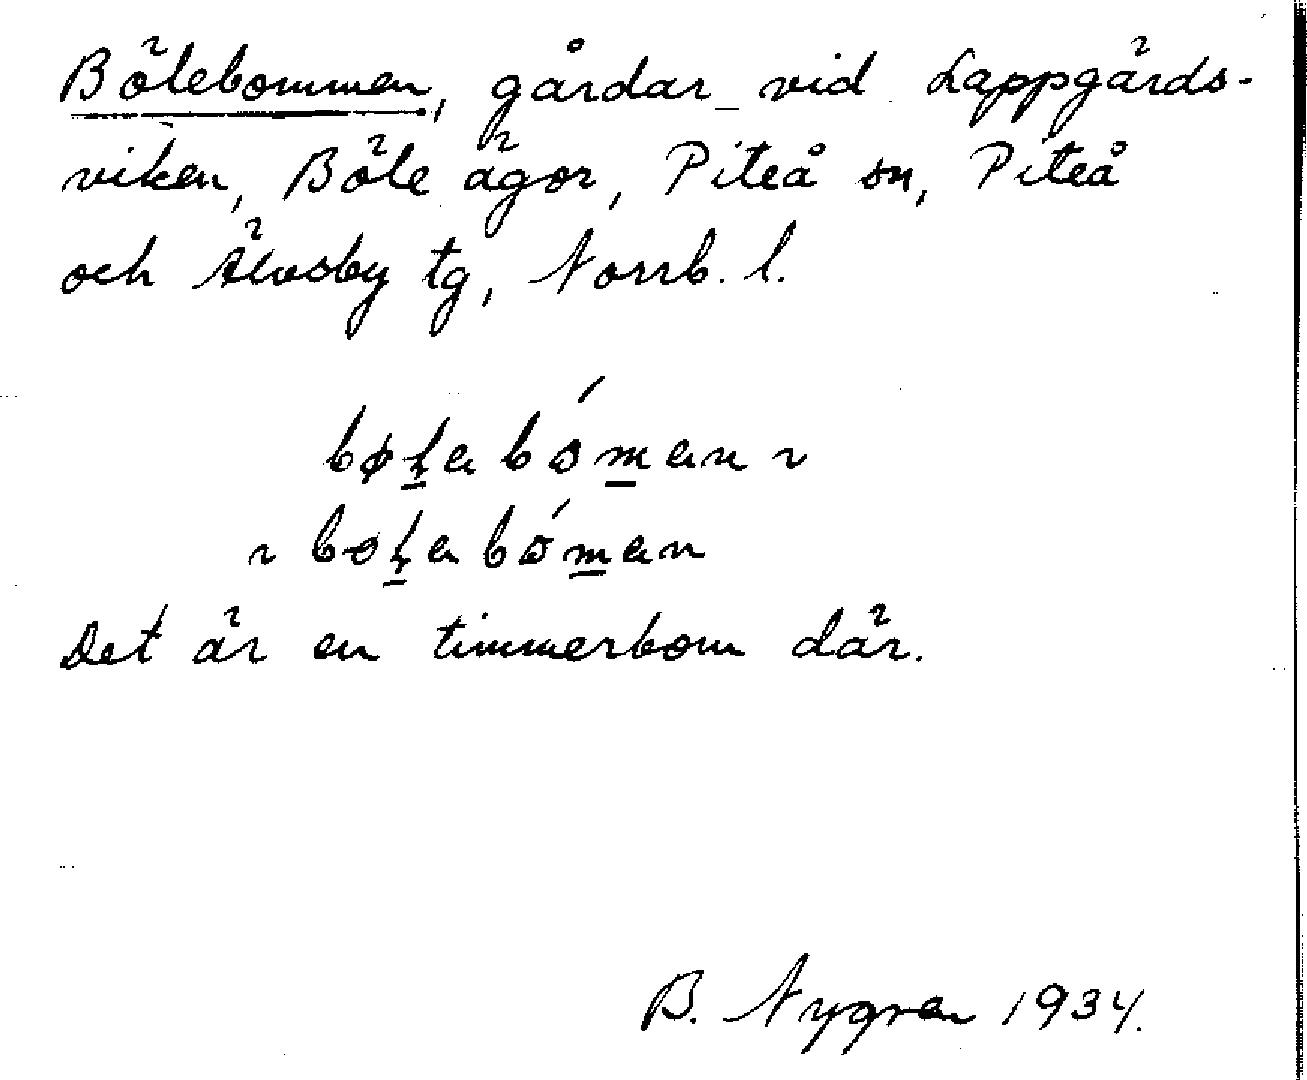 Bölebommen, gårdar vid Lappgårds-
viken, Böle ägor, Piteå sn, Piteå
och Älvsby tg, Norrb. l.
Det är en timmerbom där.
B. Nygren 1934.